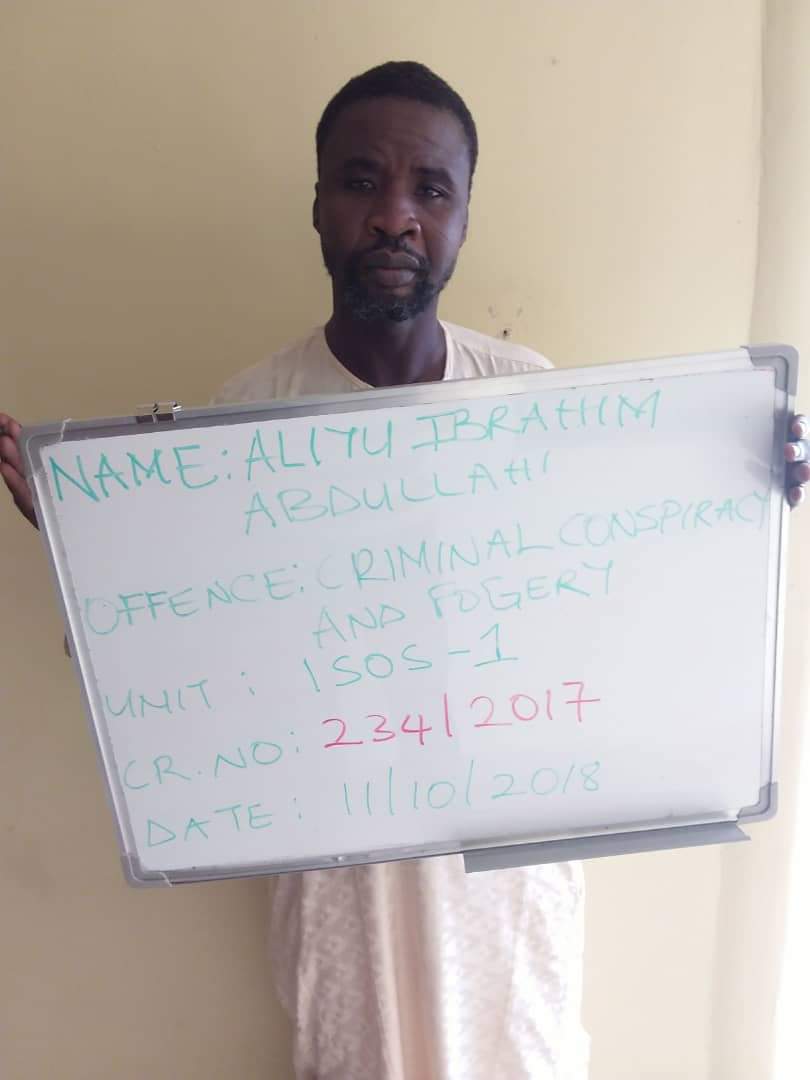 NAME: ALIYU IBRAHIM
ABDULLAHI
OFFENCE: CRIMINAL CONSPIRACY
AND FOGERY
UNIT: ISOS-1
CR. NO: 234/2017
DATE: 11/10/2018